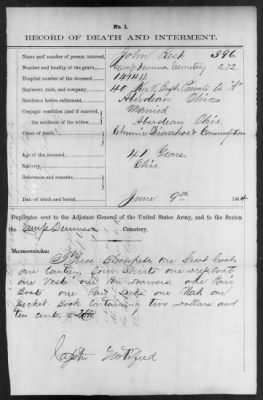 No. 1.
RECORD OF DEATH AND INTERMENT.
Name and number of person interred, John 390
Number and locality of the grave, Camp Dennison Cemetery 272
Hospital number of the deceased, 14944
Regiment, rank, and company, 40 Private Co "A"
Residence before enlistment, Aberdean Ohio
Conjugal condition, (and if married,
the residence of the widow, Married
Aberdean Ohio
Cause of death, Chronic Diarrhoea & Consumption
Age of the deceased, 40 Years
Nativity, Ohio
References and remarks,
Date of death and burial, June 9th 1864
Duplicates sent to the Adjutant General of the United States Army, and to the Sexton
the Camp Dennison Cemetery.
Memoranda:
two Blankets one Great Coat
one Canteen four Shirts one
one Vest one Pair Drawers one Pair
Boots one Pair Socks one Hat one
Pocket Book Containing two dollars and
ten cents
Capt Notified